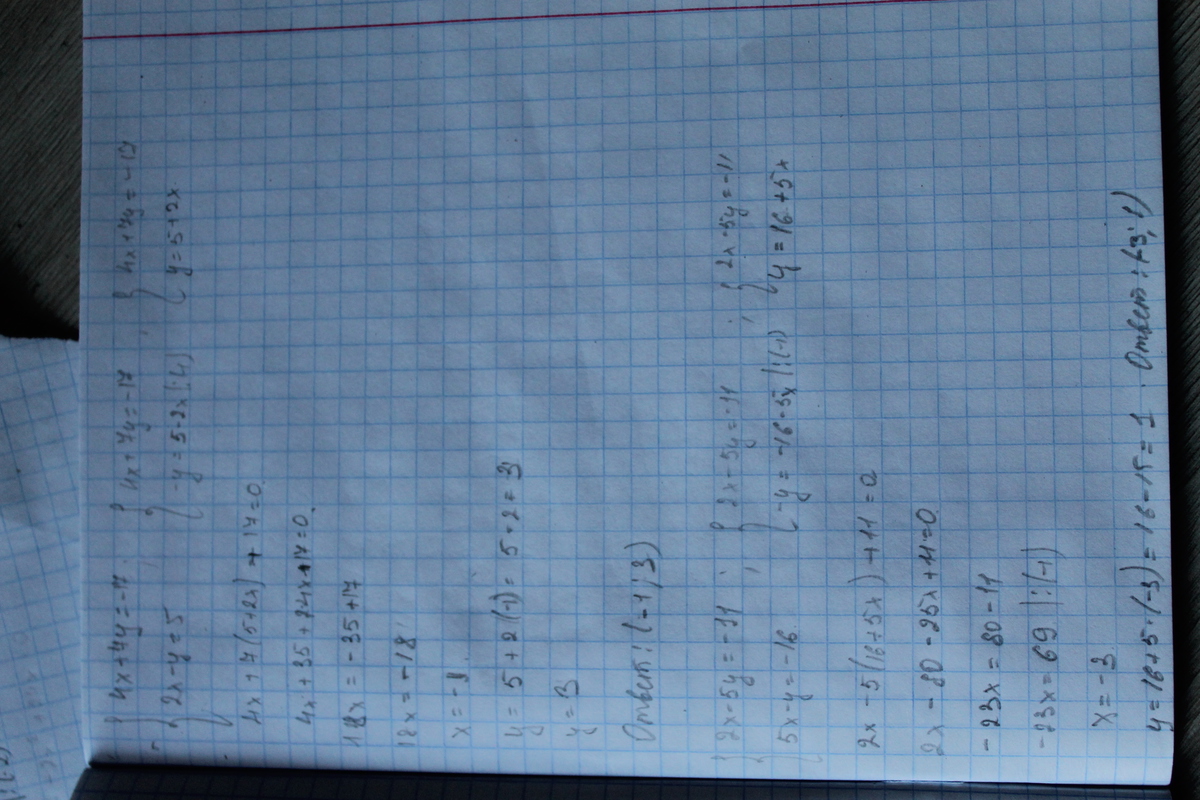 { 4x+4y=-17 { 4x+7y=-17 ; { 4x+7y=-17
{ 2x-y=5 { -y=5-2x|:(-1) { y=5+2x
4x+7(5+2x)+17=0
4x+35+24x+17=0.
18x=-35+17
18x=-18
x=-1.
y=5+2(-1)=5-2=3
y=3
Ответ: (-1;3)
{ 2x-5y=-11 ; { 2x-5y=-11 ; { 2x-5y=-11
{ 5x-y=-16 { -y=-16-5x|:(-1) { y=16+5x
2x-5(16+5x)+11=0
2x-80-25x+11=0.
-23x=80-11
-23x=69 |:(-1)
x=-3
y=16+5·(-3)=16-15=1. Ответ: (-3;1)